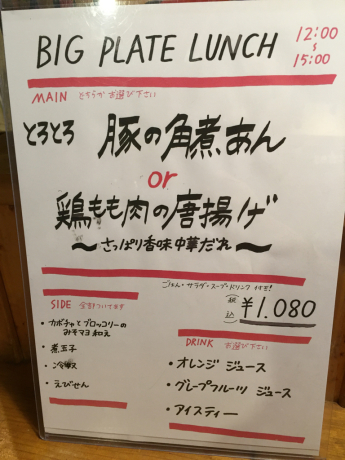 BIG PLATE LUNCH
12:00
～
15:00
MAIN どちらかお選び下さい
とろとろ 豚の角煮あん
or
鶏もも肉の唐揚げ
～さっぱり香味中華だれ～
ごはん・サラダ・スープ・ドリンク付き!
(税込) ¥1.080
SIDE 全部ついてます
・カボチャとブロッコリーの
みそマヨ和え
・煮玉子
・冷奴
・えびせん
DRINK お選び下さい
・オレンジ ジュース
・グレープフルーツ ジュース
・アイスティー